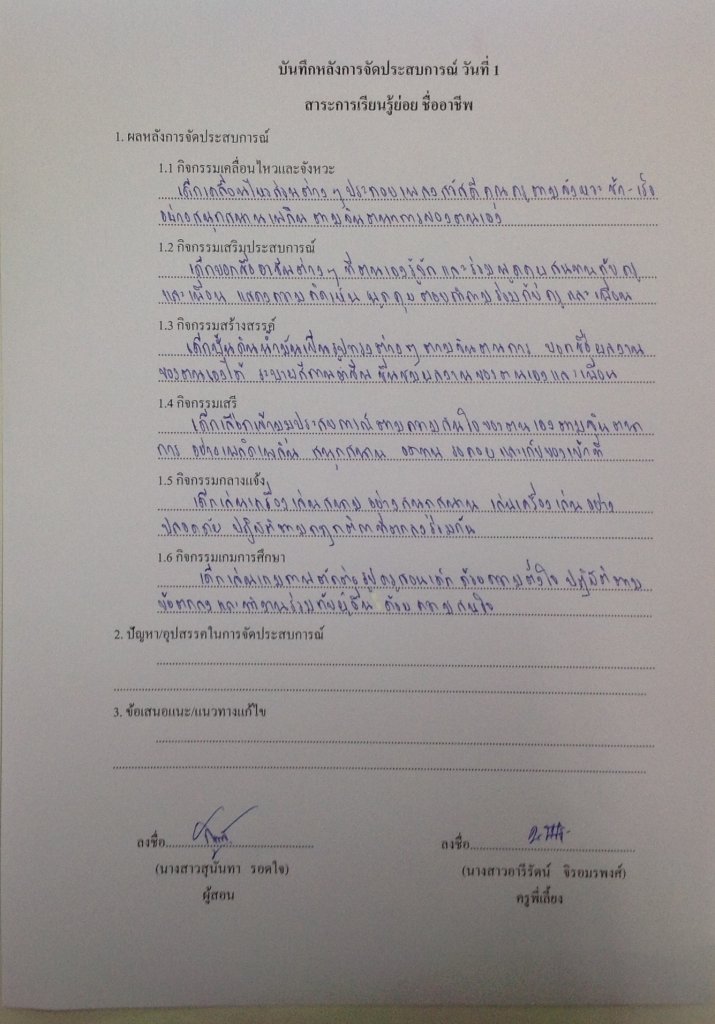 บันทึกหลังการจัดประสบการณ์ วันที่ 1
สาระการเรียนรู้ย่อย ชื่ออาชีพ
1. ผลหลังการจัดประสบการณ์
1.1 กิจกรรมเคลื่อนไหวและจังหวะ
เด็กเคลื่อนไหวส่วนต่างๆ ประกอบเพลงสวัสดีคุณครูตามจังหวะ ช้า-เร็ว
อย่างสนุกสนานเพลิน ตามจินตนาการของตนเอง
1.2 กิจกรรมเสริมประสบการณ์
เด็กบอกชื่ออาชีพต่างๆ ที่ตนเองรู้จัก และร่วมพูดคุยสนทนากับครู
และเพื่อน แสดงความคิดเห็น พูดคุยตอบคำถามร่วมกับครู และเพื่อน
1.3 กิจกรรมสร้างสรรค์
เด็กปั้นดินน้ำมันเป็นรูปทรงต่างๆ ตามจินตนาการ บอกชื่อผลงาน
ของตนเองได้ ระบายสีภาพ ชื่นชมผลงานของตนเองและเพื่อน
1.4 กิจกรรมเสรี
เด็กเลือกเข้ามุมประสบการณ์ตามความสนใจของตนเองตามจินตนา
การ อย่างเพลิดเพลิน สนุกสนาน อดทน รอคอย และเก็บของเข้าที่
1.5 กิจกรรมกลางแจ้ง
เด็กเล่นเครื่องเล่นสนาม อย่างสนุกสนาน เล่นเครื่องเล่นอย่าง
ปลอดภัย ปฏิบัติตามกฎกติกาที่ตกลงร่วมกัน
1.6 กิจกรรมเกมการศึกษา
เด็กเล่นเกมภาพตัดต่อรูปครูสอนเด็ก ด้วยความตั้งใจ ปฏิบัติตาม
ข้อตกลง และทำงานร่วมกับผู้อื่น ด้วยความสนใจ
2. ปัญหา/อุปสรรคในการจัดประสบการณ์
3. ข้อเสนอแนะ/แนวทางแก้ไข
ลงชื่อ
(นางสาวสุนันทา รอดใจ)
ผู้สอน
ลงชื่อ
(นางสาวอารีรัตน์ จิรอมรพงศ์)
ครูพี่เลี้ยง